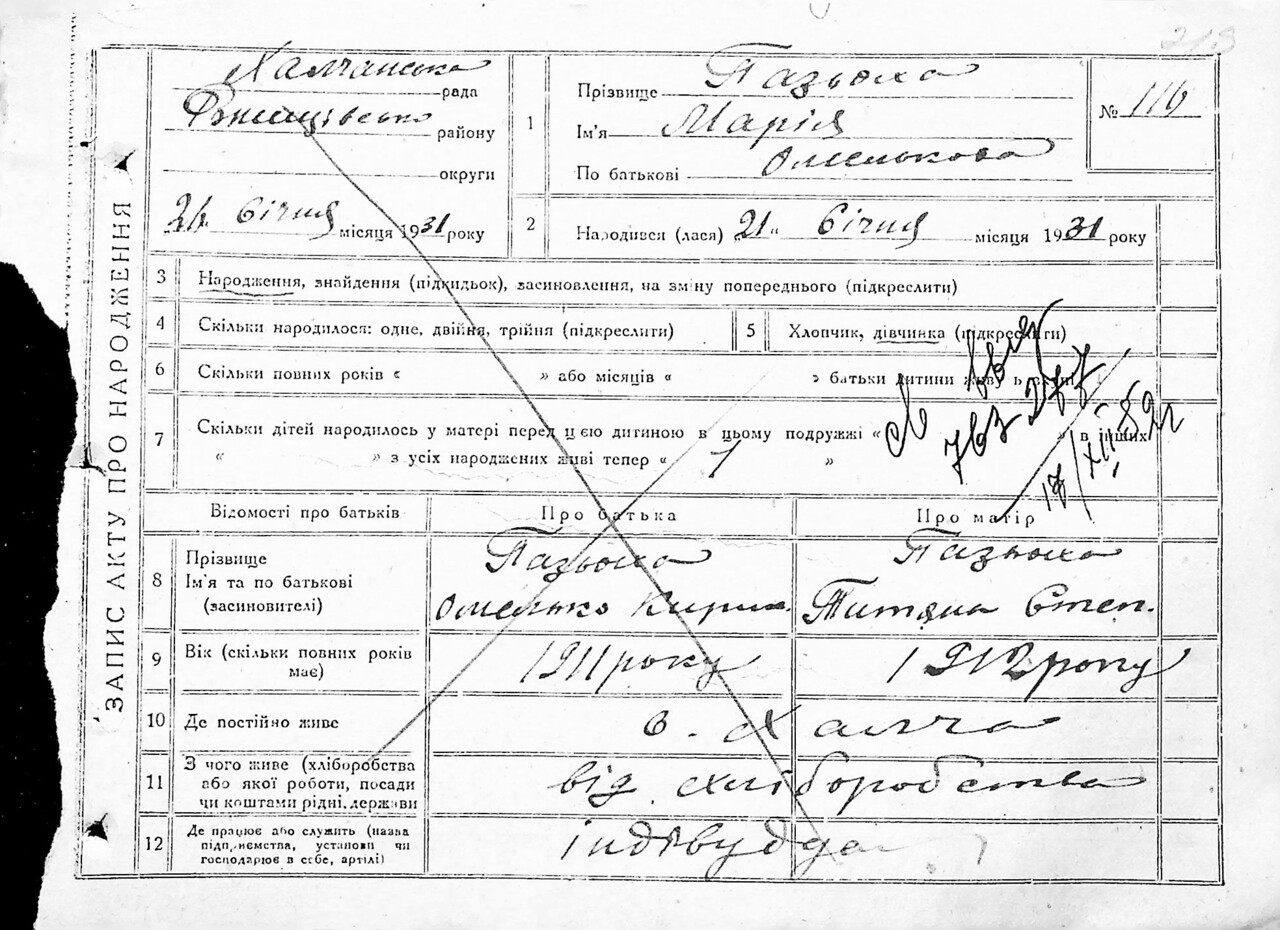 ЗАПИС АКТУ ПРО НАРОДЖЕННЯ
Халчанська рада
району
округи
місяця 1931 року
1
Прізвище Пазьоха
Ім'я Марія
По батькові Омелькова
№ 116
2
Народився (лася) 21 " Січня місяця 1931 року
3 Народження, знайдення (підкидьок), засиновлення, на зміну попереднього (підкреслити)
4 Скільки народилося: одне, двійня, трійня (підкреслити)
5 Хлопчик, дівчинка (підкреслити)
6 Скільки повних років « » або місяців « » батьки дитини живуть
7 Скільки дітей народилось у матері перед цією дитиною в цьому подружжі « » в інших
« » з усіх народжених живі тепер « 1 »
Відомості про батьків
Про батька
Про матір
8 Прізвище
Ім'я та по батькові
(засиновителі)
Пазьоха
Омелько Кирил.
Пазьоха
Титяна Степ.
9 Вік (скільки повних років
має)
1911 року
1912 року
10 Де постійно живе
с. Халча
11 З чого живе (хліборобства
або якої роботи, посади
чи коштами рідні, держави
від хліборобства
12 Де працює або служить (назва
підприємства, установи чи
господарює в себе, артілі)